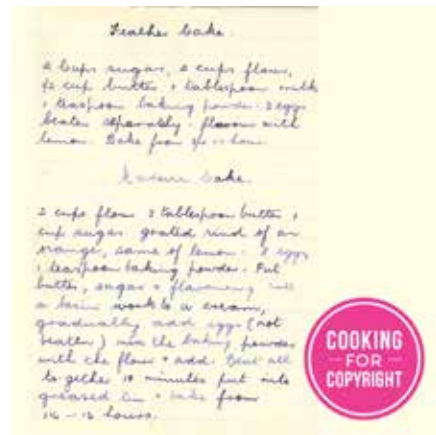 Feather Cake.
2 Cups sugar, 2 cups flour,
½ cup butter 1 tablespoon milk
1 teaspoon baking powder. 3 eggs
beaten separately. flavour with
lemon. Bake from ¾ hour
Madeira Cake.
2 cups flour 3 tablespoon butter 1
cup sugar. grated rind of an
orange, same of lemon. 3 eggs
1 teaspoon baking powder. Put
butter, sugar + flavouring into
a basin work to a cream,
gradually add eggs (not
beaten) mix the baking powder
with the flour + add. Beat all
to gether 10 minutes put into
greased tin + bake from
hours.
COOKING
FOR
COPYRIGHT